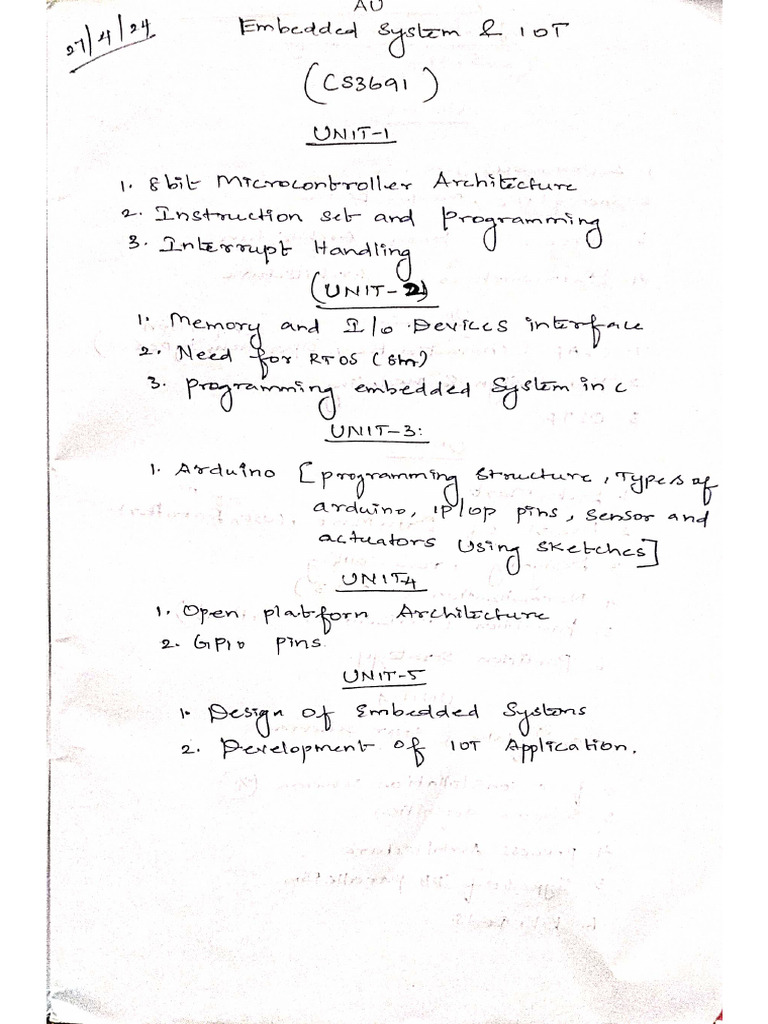 AU
27/4/24
Embedded System & IOT
(CS3691)
UNIT-1
1. 8bit Microcontroller Architecture
2. Instruction set and Programming
3. Interrupt Handling
(UNIT-2)
1. Memory and I/o Devices interface
2. Need for RTOS (8m)
3. programming embedded System in c
UNIT-3:
1. Arduino [programming structure, Types of
arduino, IP/op pins, sensor and
actuators using sketches]
UNIT4
1. Open platform Architecture
2. GPIO pins
UNIT-5
1. Design of Embedded Systems
2. Development of IOT Application.